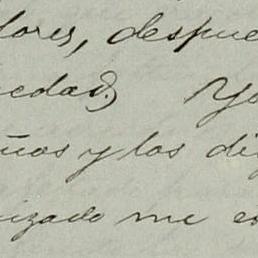 lores, despue
iedad.) Yo
ños y los di
izado me es